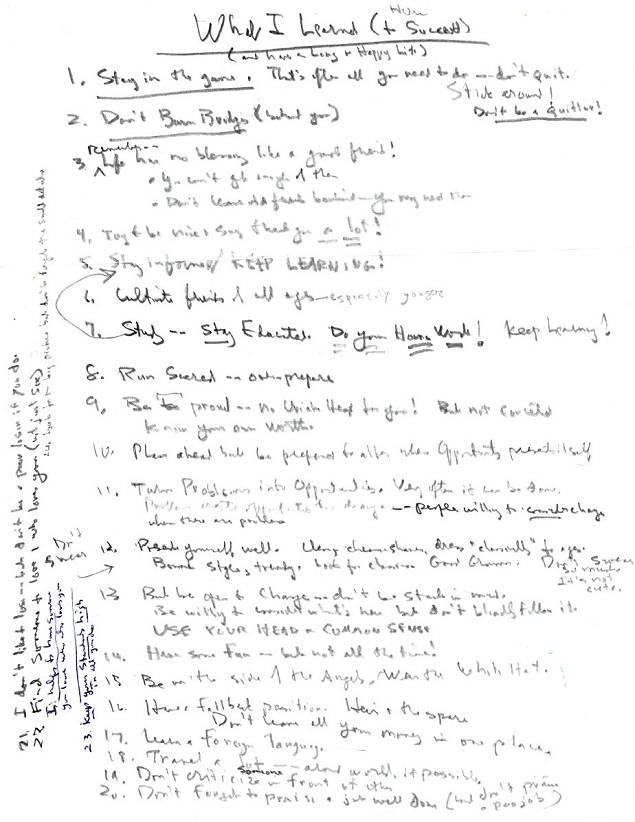 What I Learned (How to Succeed)
(and have a Long & Happy Life)
1. Stay in the game. That's often all you need to do — don't quit.
Stick around!
Don't be a Quitter!
2. Don't Burn Bridges (behind you)
Remember --
3. Life has no blessing like a good friend!
• You can't get enough of them
• Don't leave old friends behind — you may need them
4. Try to be nice & say thank you a lot!
5. Stay informed / KEEP LEARNING!
6. Cultivate friends of all ages — especially younger
7. Study -- Stay Educated. Do your Home Work! Keep learning!
8. Run Scared -- over-prepare
9. Be proud -- no Uriah Heep for you! But not conceited
Know your own worth.
10. Plan ahead but be prepared to alter when Opportunity presents itself
11. Turn Problems into Opportunities. Very often it can be done.
Problems create opportunities for change -- people willing to consider change
when there are problems
12. Present yourself well. Clean, clean shaven, dress "classically" to age.
Beware styles, trendy. Look for charm. Good Grammar. Don't swear
so much
It's not
cute.
13. But be open to Change — don't be stuck in mud.
Be willing to consider what's new but don't blindly follow it.
USE YOUR HEAD & COMMON SENSE
14. Have some fun — but not all the time!
15 Be on the side of the Angels, Wear the White Hat.
16. Have a fallback position. Heir & the spare
Don't leave all your money in one place.
17. Learn a Foreign language.
18. Travel a lot -- around world, if possible.
19. Don't criticize someone in front of others
20. Don't forget to praise a job well done (but don't praise
a poor job)
21. I don't like to lose — but don't be a poor loser if you do.
22. Find someone to love & who loves you
It helps to have someone
you love who loves you
23. Keep your standards high
in all you do
24. Look for the big picture but don't forget the small details